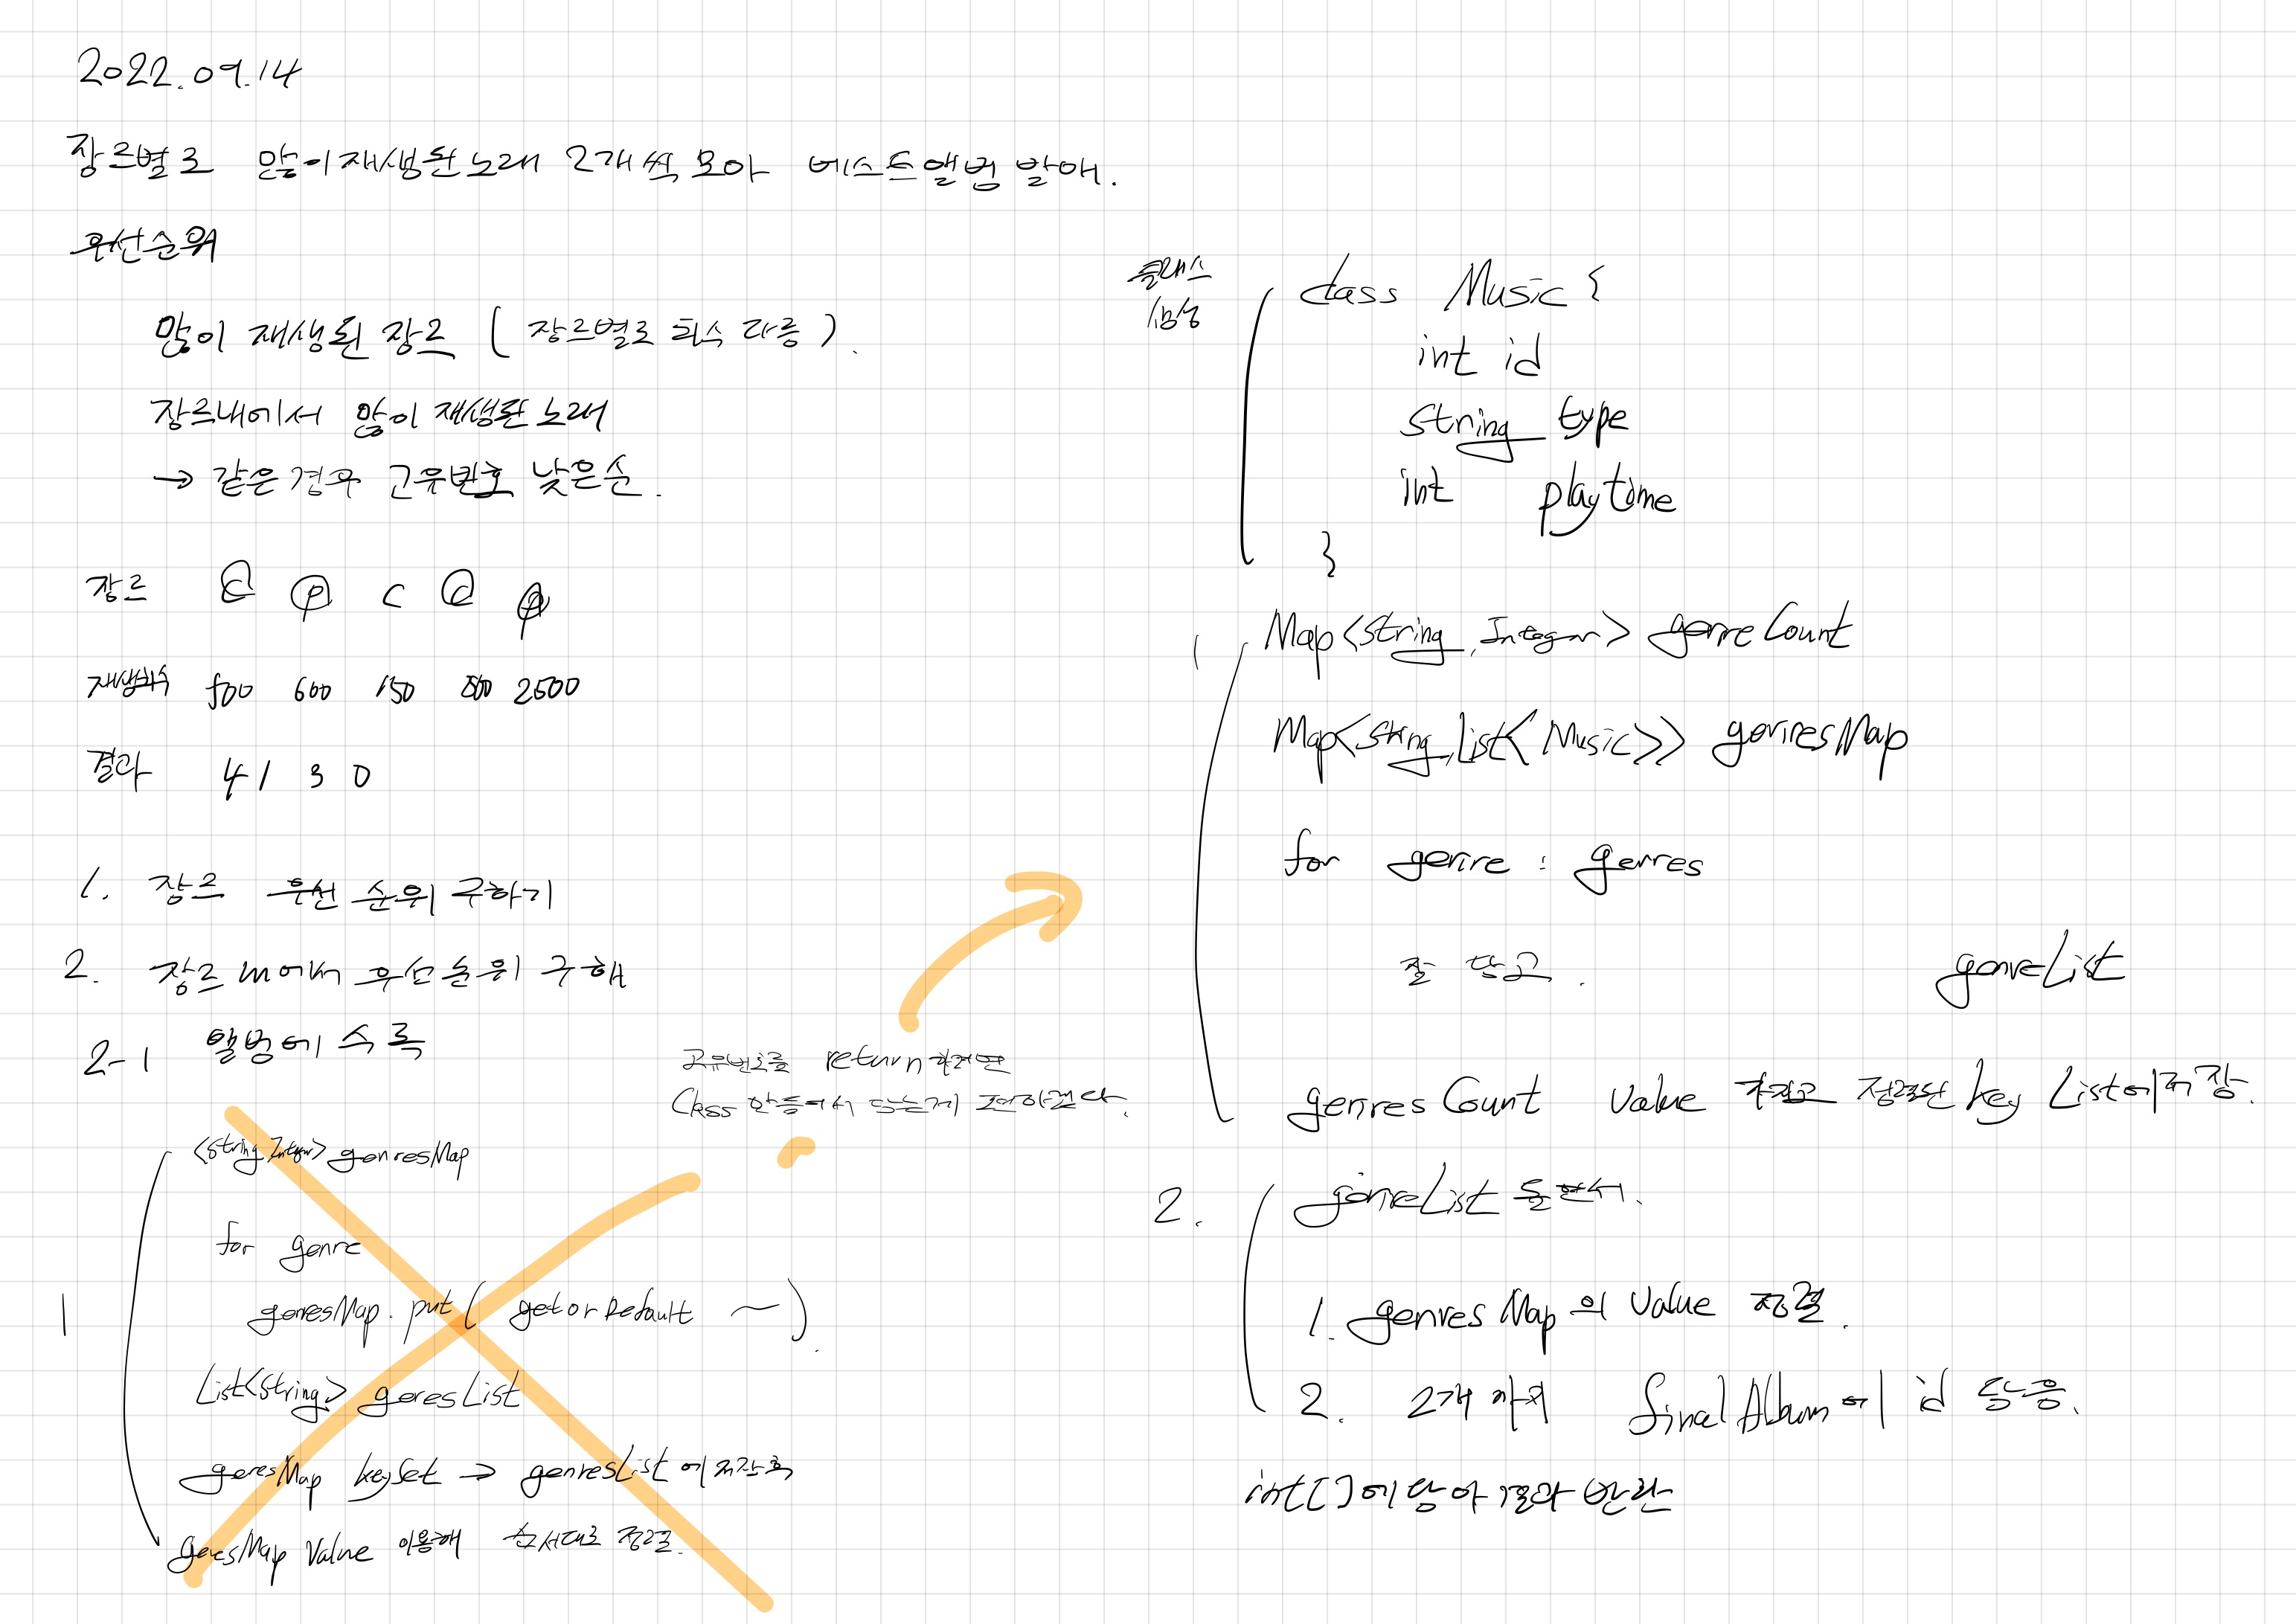 2022.09.14
장르별로 많이 재생된 노래 2개씩 모아 베스트앨범 발매.
우선순위
많이 재생된 장르 ( 장르별로 횟수 다름 ).
장르내에서 많이 재생된 노래
→ 같은 경우 고유번호 낮은순.
장르 C P C C P
재생횟수 500 600 150 800 2500
결과 4 1 3 0
1. 장르 우선 순위 구하기
2. 장르 내에서 우선순위 구해
2-1 앨범에 수록
고유번호를 return하려면
Class 만들어서 담는게 편하겠다.
1
<String Integer> genresMap
for genre
genresMap. put( getorDefault ~ ).
List<String> genresList
genresMap keySet → genresList 에 저장 후
genresMap Value 이용해 순서대로 정렬.
클래스
생성
class Music {
int id
String type
int playtime
}
1
Map<String, Integer> genreCount
Map<String, List<Music>> genresMap
for genre : genres
잘 담고.
genreList
genresCount value 가지고 정렬된 key List에 저장.
2. genreList 돌면서.
1. genresMap의 Value 정렬.
2. 2개 까지 finalAlbum에 id 담음.
int[]에 담아 결과 반환